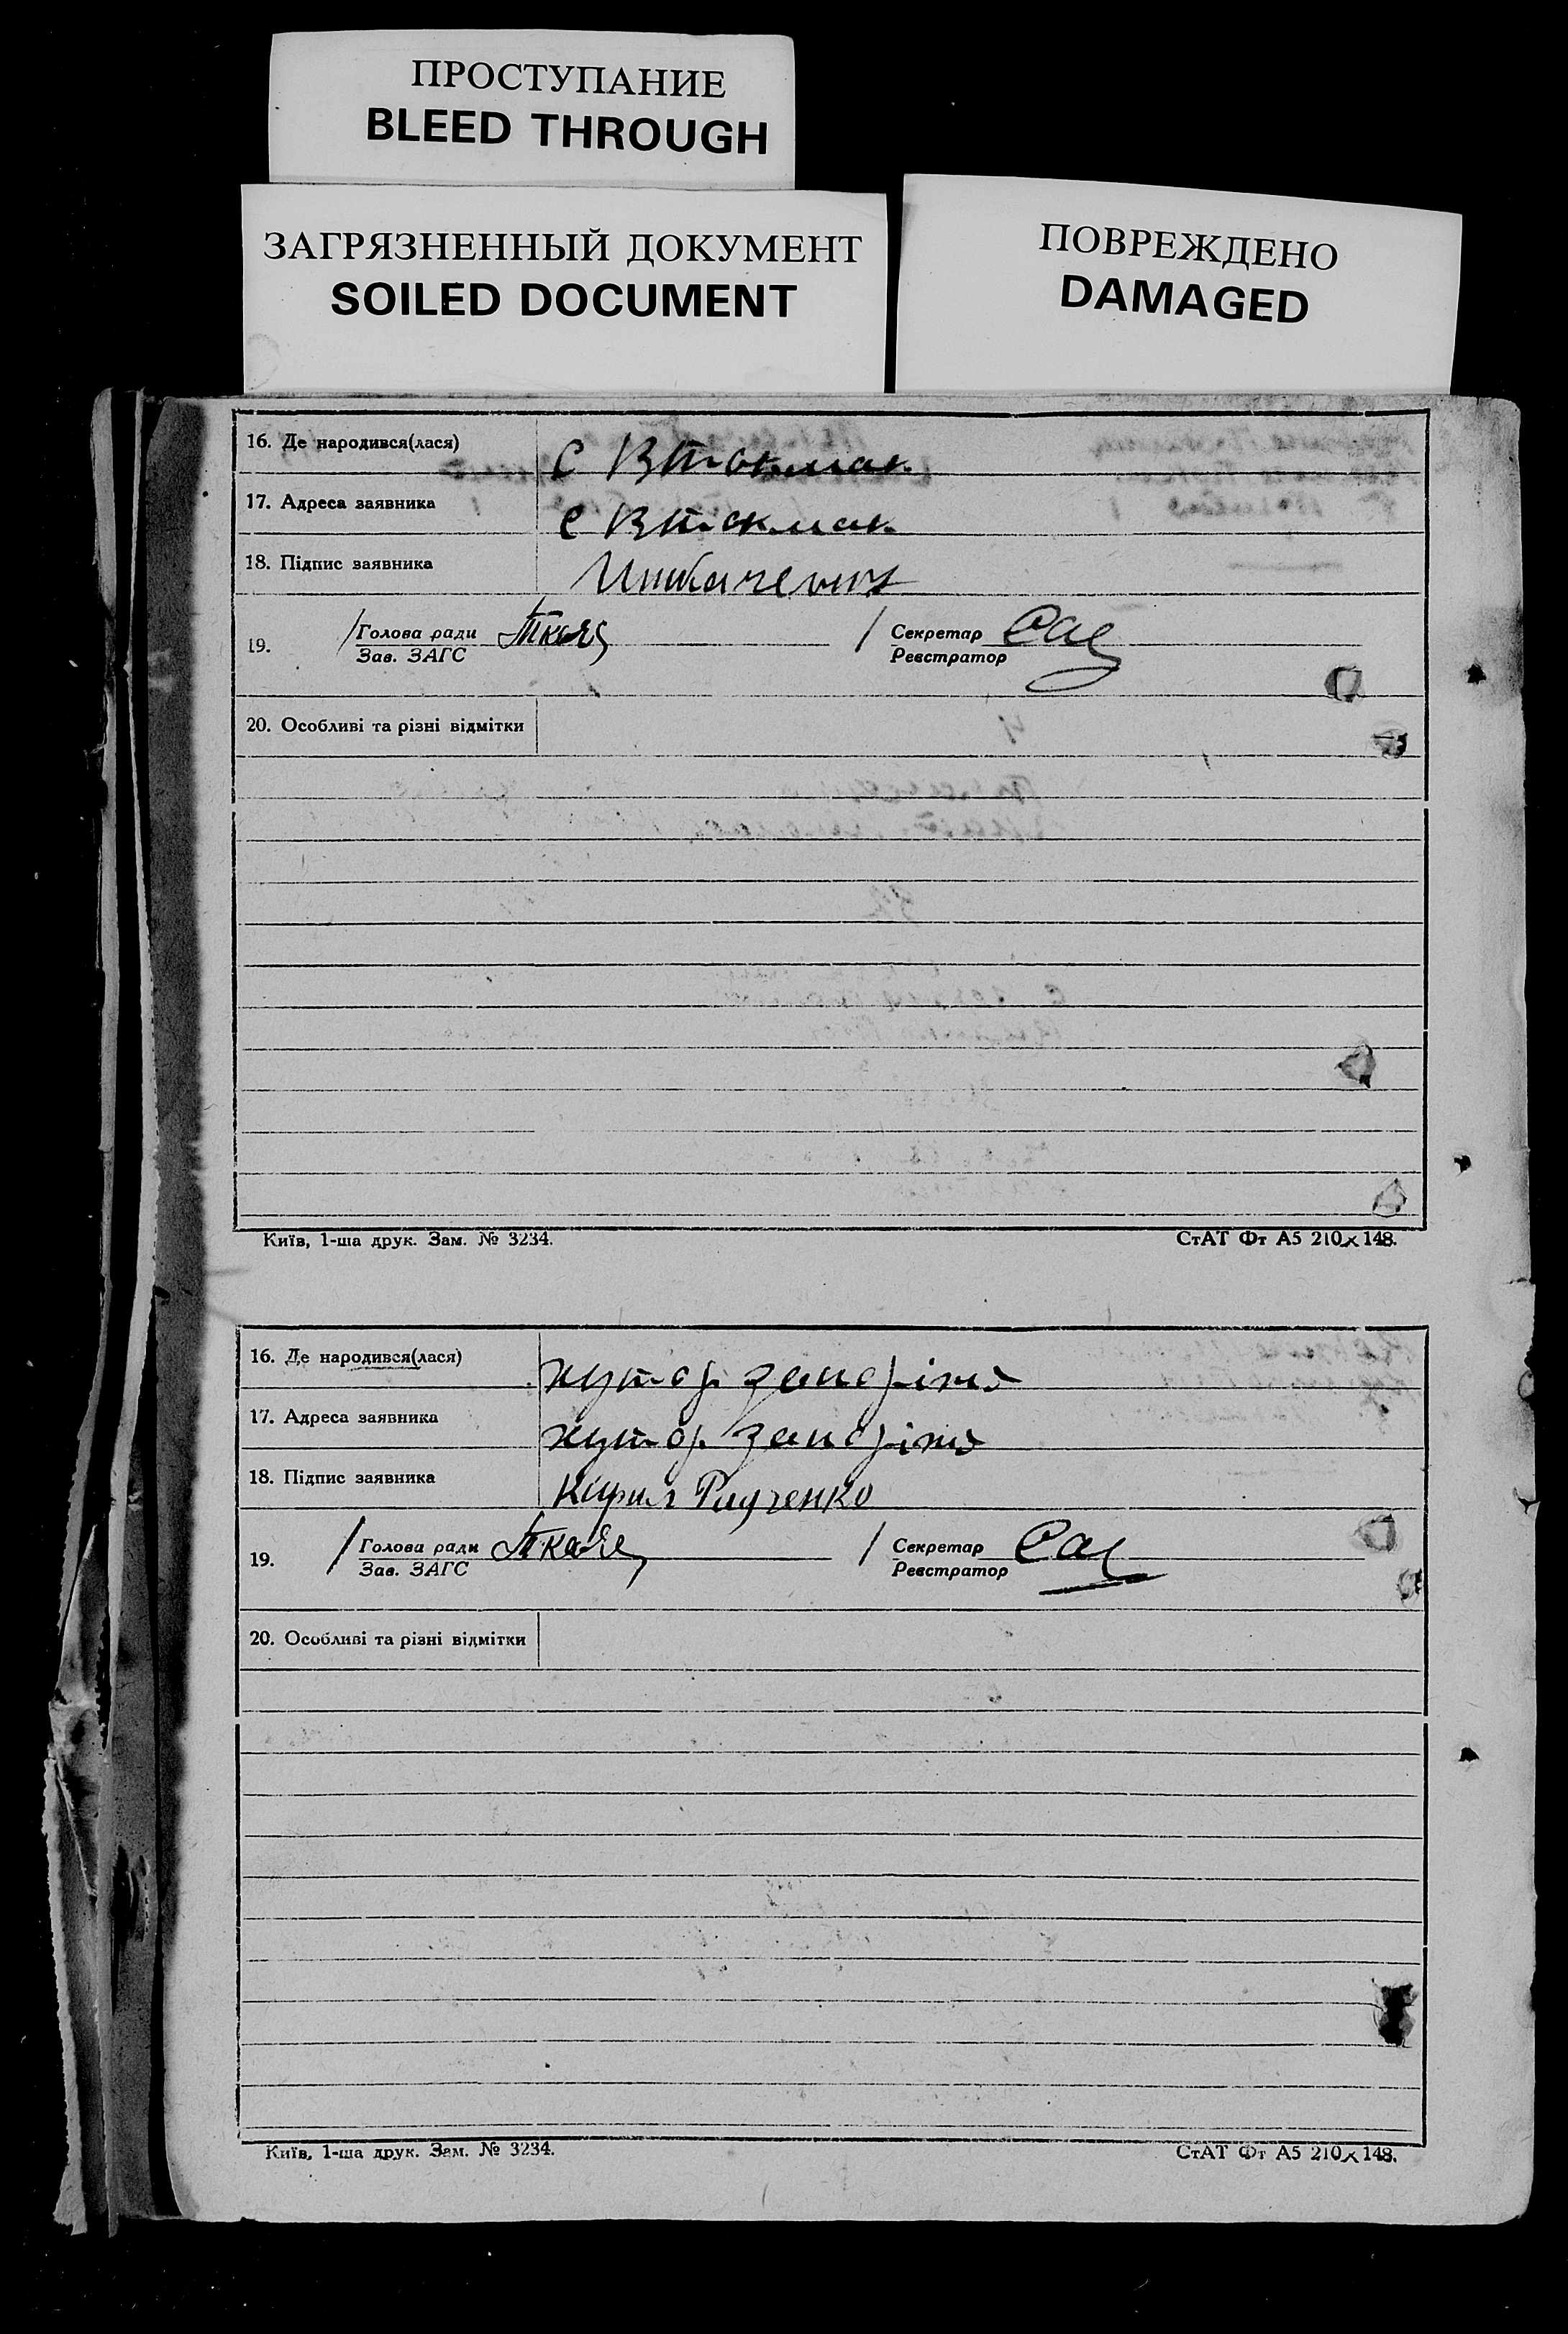 ПРОСТУПАНИЕ
BLEED THROUGH
ЗАГРЯЗНЕННЫЙ ДОКУМЕНТ
SOILED DOCUMENT
ПОВРЕЖДЕНО
DAMAGED
16. Де народився(лася) с Втокмак
17. Адреса заявника с Втокмак
18. Підпис заявника
19. Голова ради Секретар
Зав. ЗАГС Реєстратор
20. Особливі та різні відмітки
Київ, 1-ша друк. Зам. № 3234. СтАТ Фт А5 210×148.
16. Де народився(лася) хутор запоріжя
17. Адреса заявника хутор запоріжя
18. Підпис заявника Кирил Радченко
19. Голова ради Секретар
Зав. ЗАГС Реєстратор
20. Особливі та різні відмітки
Київ, 1-ша друк. Зам. № 3234. СтАТ Фт А5 210×148.